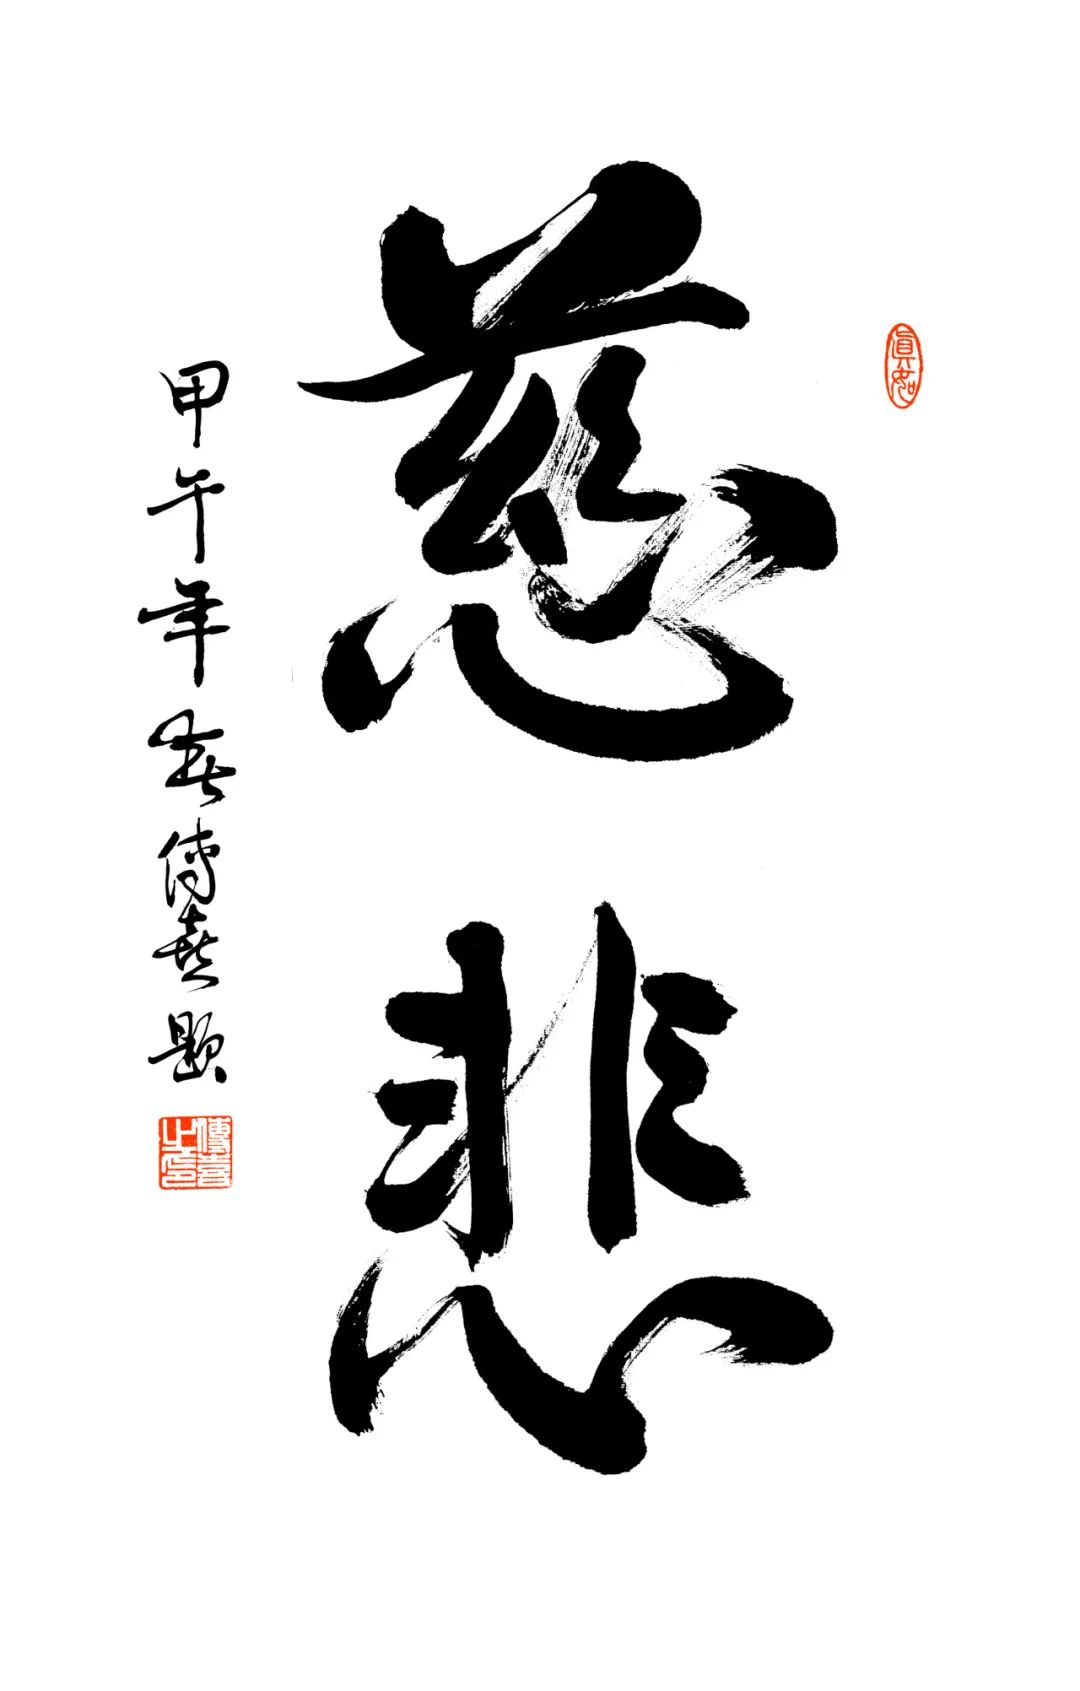 真如
慈悲
甲午年春傳喜題
傳喜之印